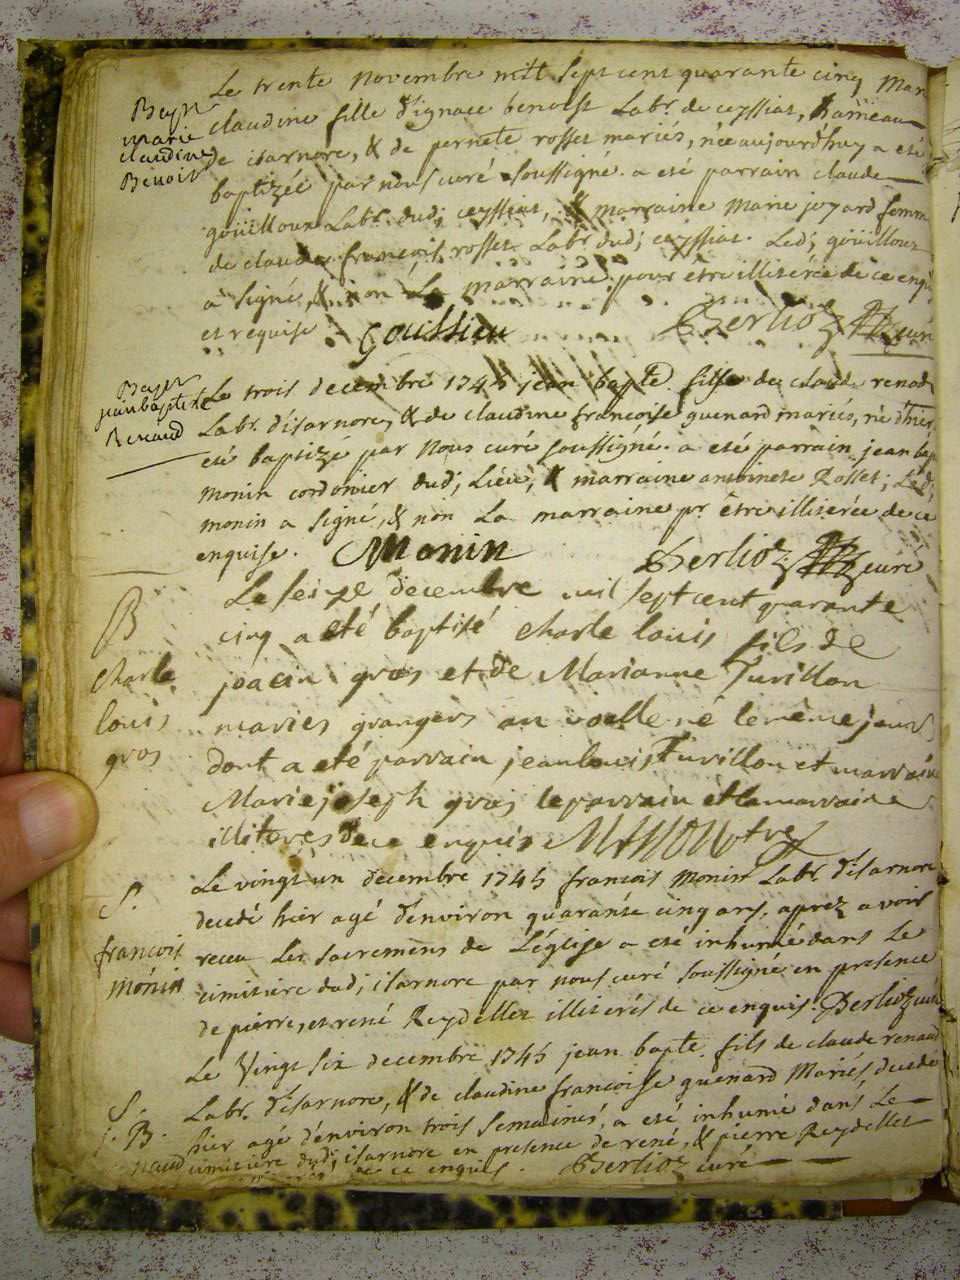 Le trente Novembre mill sept cent quarante cinq Mari
Bapt
marie
claudine
Benoit
claudine fille d'ignace benoist Labr. de ceyssiat, hameau
de isarnore, & de pernete rosset mariés, née aujourd'huy a eté
baptizée par nous curé soussigné. a eté parrain claude
goüilloux Labr. dud; ceyssiat, & marraine Marie joyard femme
de claude françois rosset Labr. dud; ceyssiat. Led; goüilloux
a signé, & non La marraine pour être illiterée de ce enqu
et requise. Berlioz curé
Bapt
jean baptiste
Renaud
Le trois decembre 1745 jean bapte. fils de claude renaud
Labr. d'isarnore, & de claudine françoise guenard mariés, né d'hier
eté baptizé par Nous curé soussigné. a eté parrain jean bapt
monin cordonier dud; Lieu, & marraine antoinete Rosset; Led;
monin a signé, & non La marraine pr être illiterée de ce
enquise. Monin Berlioz curé
B
charle
louis
gros
Le seize decembre mil sept cent quarante
cinq a eté baptisé charle louis fils de
joacin gros et de Marianne Turillon
maries grangers au né le même jour
dont a eté parrain jean louis Turillon et marraine
Marie joseph gros le parrain et la marraine
illiteres de ce enquis
S.
françois
mönin
Le vingt un decembre 1745 francois Monin Labr. d'isarnore
decedé hier agé d'environ quarante cinq ans, aprez avoir
receu Les sacremens de L'église a eté inhumé dans Le
cimitiere dud; isarnore par nous curé soussigné en presence
de pierre, et rené Reydellet illiterés de ce enquis. Berlioz curé
S.
j. B.
naud
Le Vingt six decembre 1745 jean bapte. fils de claude renaud
Labr. d'isarnore, & de claudine francoise guenard Mariés, decedé
hier agé d'environ trois semaines, a eté inhumé dans Le
cimitiere dud; isarnore en presence de rené, & pierre Reydellet
de ce enquis. Berlioz curé